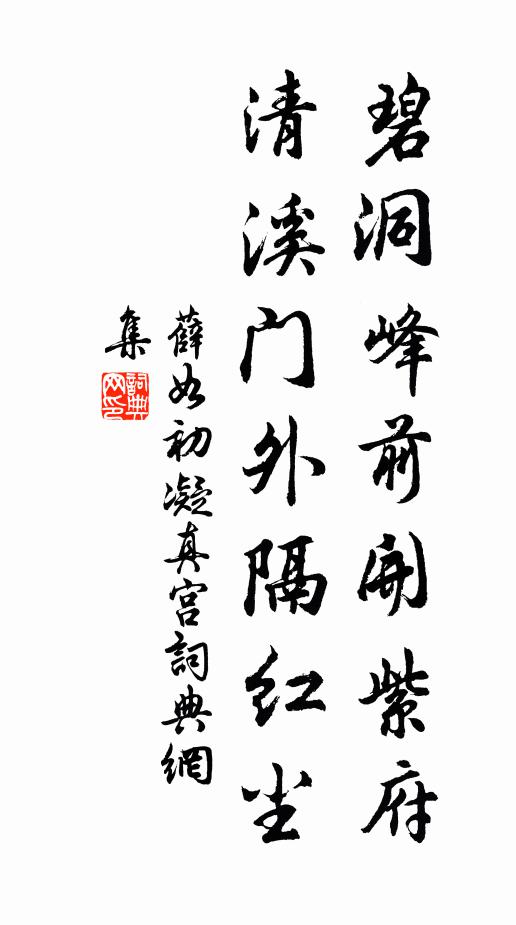 碧洞峰前開紫府
清溪门外隔红尘
薛如初凝真宫詞典網
集
詞典
网印